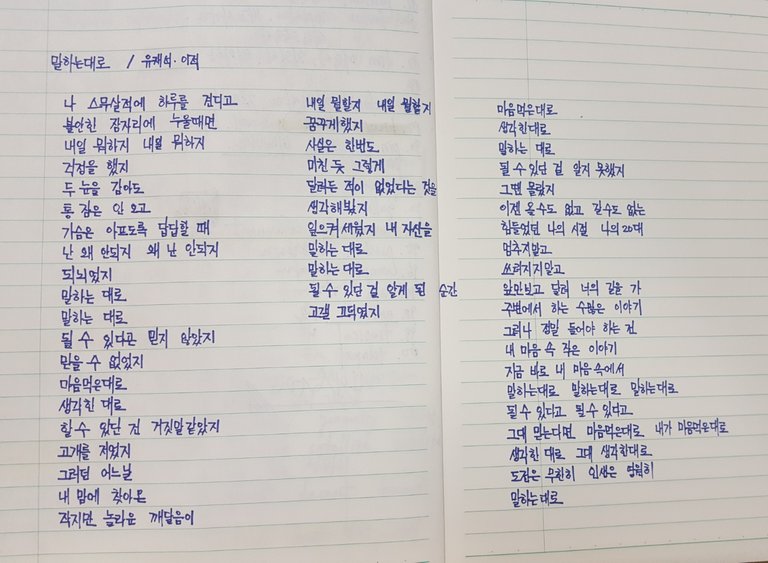 말하는대로 / 유재석·이적
나 스무살적에 하루를 견디고
불안한 잠자리에 누울때면
내일 뭐하지 내일 뭐하지
걱정을 했지
두 눈을 감아도
통 잠은 안 오고
가슴은 아프도록 답답할 때
난 왜 안되지 왜 난 안되지
되뇌었지
말하는 대로
말하는 대로
될 수 있다곤 믿지 않았지
믿을 수 없었지
마음먹은대로
생각한 대로
할 수 있단 건 거짓말같았지
고개를 저었지
그러던 어느날
내 맘에 찾아온
작지만 놀라운 깨달음이
내일 뭘할지 내일 뭘할지
꿈꾸게했지
사실은 한번도
미친 듯 그렇게
달려든 적이 없었다는 것을
생각해봤지
일으켜세웠지 내 자신을
말하는 대로
말하는 대로
될 수 있단 걸 알게 된 순간
고갤 끄덕였지
마음먹은대로
생각한대로
말하는 대로
될 수 있단 걸 알지 못했지
그땐 몰랐지
이젠 올수도 없고 갈수도 없는
힘들었던 나의 시절 나의 20대
멈추지말고
쓰러지지말고
앞만보고 달려 너의 길을 가
주변에서 하는 수많은 이야기
그러나 정말 들어야 하는 건
내 마음 속 작은 이야기
지금 바로 내 마음속에서
말하는대로 말하는대로 말하는대로
될 수 있다고 될 수 있다고
그대 믿는다면 마음먹은대로 내가 마음먹은대로
생각한 대로 그대 생각한대로
도전은 무한히 인생은 영원히
말하는대로